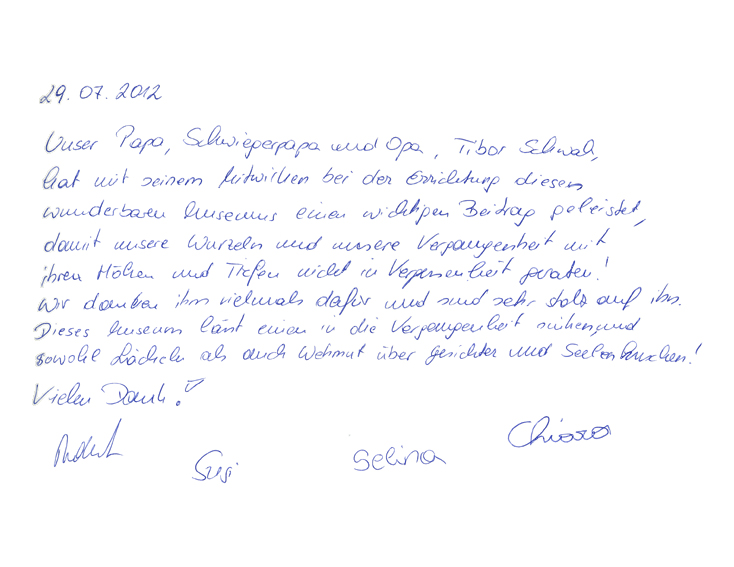 29. 07. 2012
Unser Papa, Schwiegerpapa und Opa, Tibor Schwab,
hat mit seinem Mitwirken bei der Errichtung dieses
wunderbaren Museums einen wichtigen Beitrag geleistet,
damit unsere Wurzeln und unsere Vergangenheit mit
ihren Höhen und Tiefen nicht in Vergessenheit geraten!
Wir danken ihm vielmals dafür und sind sehr stolz auf ihn.
Dieses Museum lässt einen in die Vergangenheit und
sowohl Lächeln als auch Wehmut über Gesichter und Seelen huschen!
Vielen Dank!
Susi
Selina
Chiara